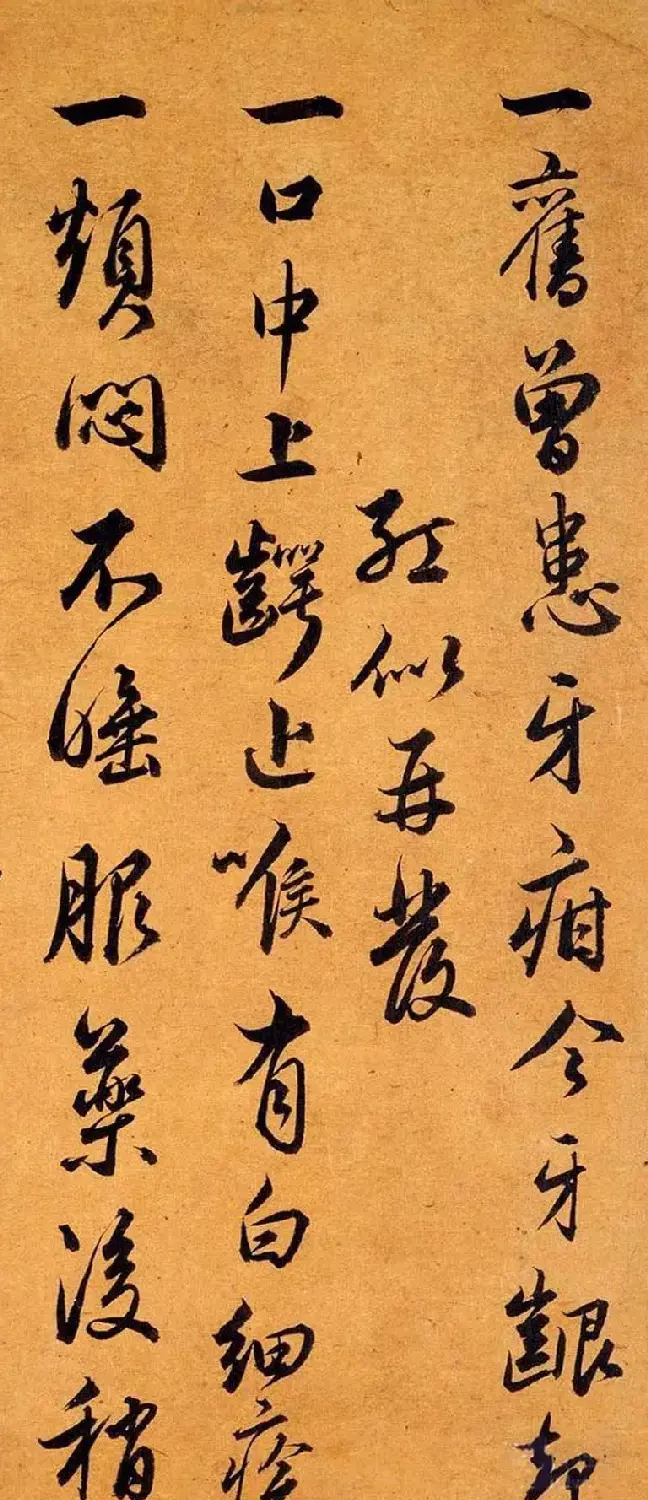 一舊曾患牙疳今牙齦却
似再發
一口中上齶近喉有白細疹
一煩悶不睡服藥後稍